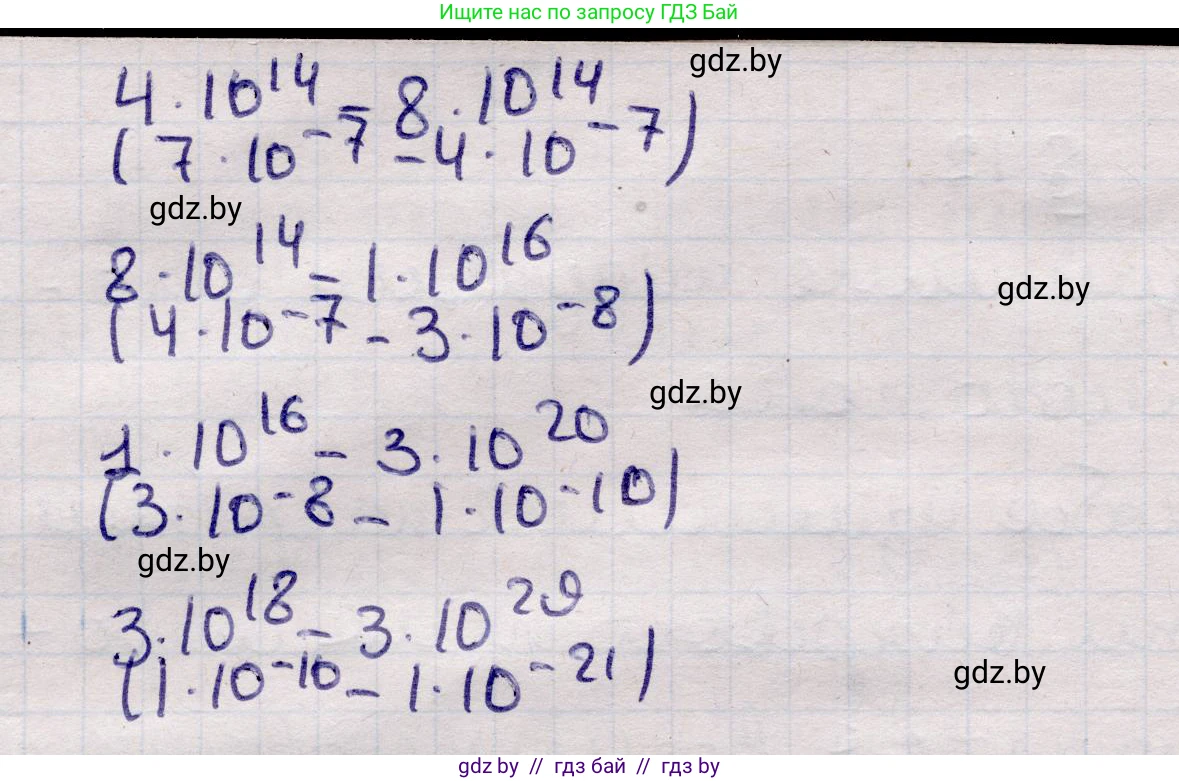 Ищите нас по запросу ГДЗ Бай
gdz.by
4·10¹⁴ – 8·10¹⁴
(7·10⁻⁷ – 4·10⁻⁷)
gdz.by
8·10¹⁴ – 1·10¹⁶
gdz.by
(4·10⁻⁷ – 3·10⁻⁸)
gdz.by
1·10¹⁶ – 3·10²⁰
(3·10⁻⁸ – 1·10⁻¹⁰)
gdz.by
3·10¹⁸ – 3·10²⁹
(1·10⁻¹⁰ – 1·10⁻²¹)
gdz.by
gdz.by // гдз бай // гдз by